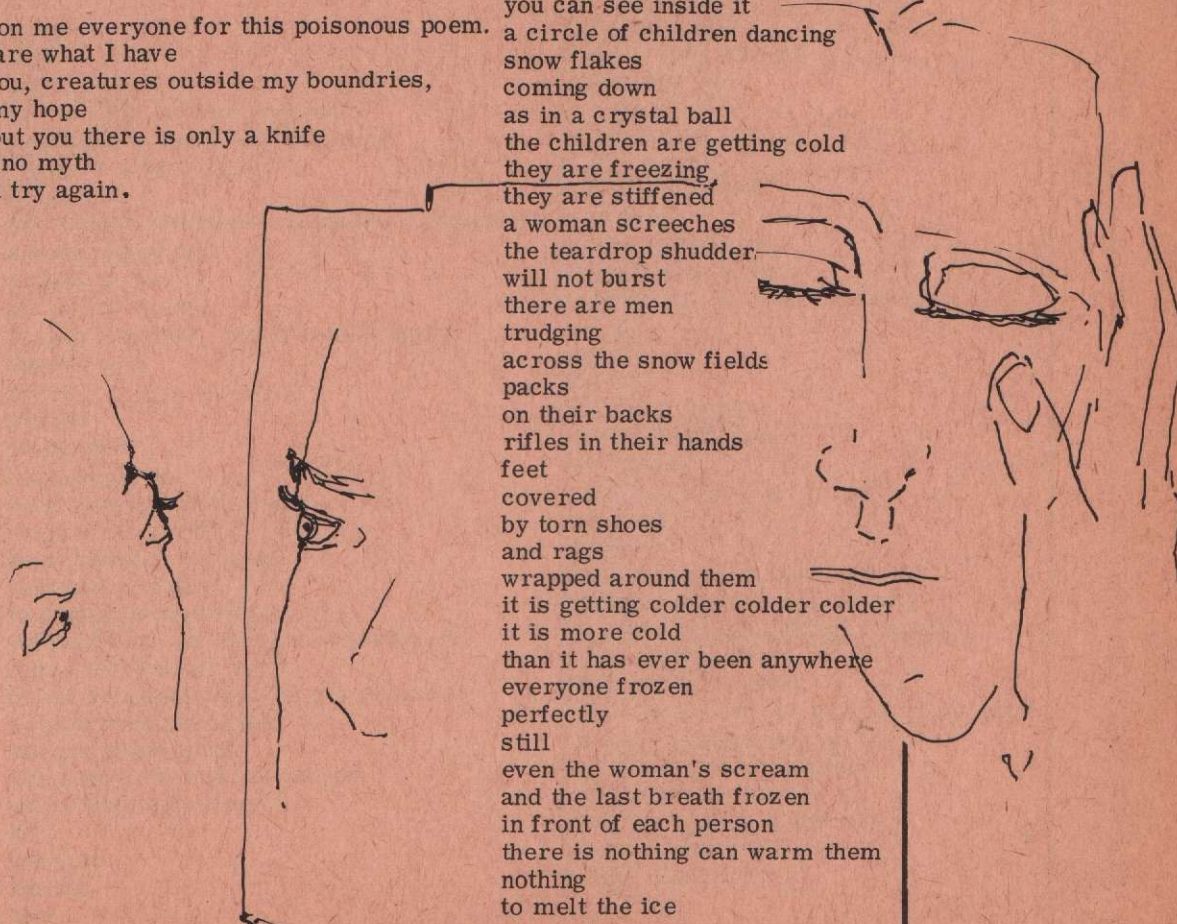 on me everyone for this poisonous poem.
are what I have
ou, creatures outside my boundries,
ny hope
out you there is only a knife
no myth
try again.
you can see inside it
a circle of children dancing
snow flakes
coming down
as in a crystal ball
the children are getting cold
they are freezing
they are stiffened
a woman screeches
the teardrop shudder
will not burst
there are men
trudging
across the snow fields
packs
on their backs
rifles in their hands
feet
covered
by torn shoes
and rags
wrapped around them
it is getting colder colder colder
it is more cold
than it has ever been anywhere
everyone frozen
perfectly
still
even the woman's scream
and the last breath frozen
in front of each person
there is nothing can warm them
nothing
to melt the ice